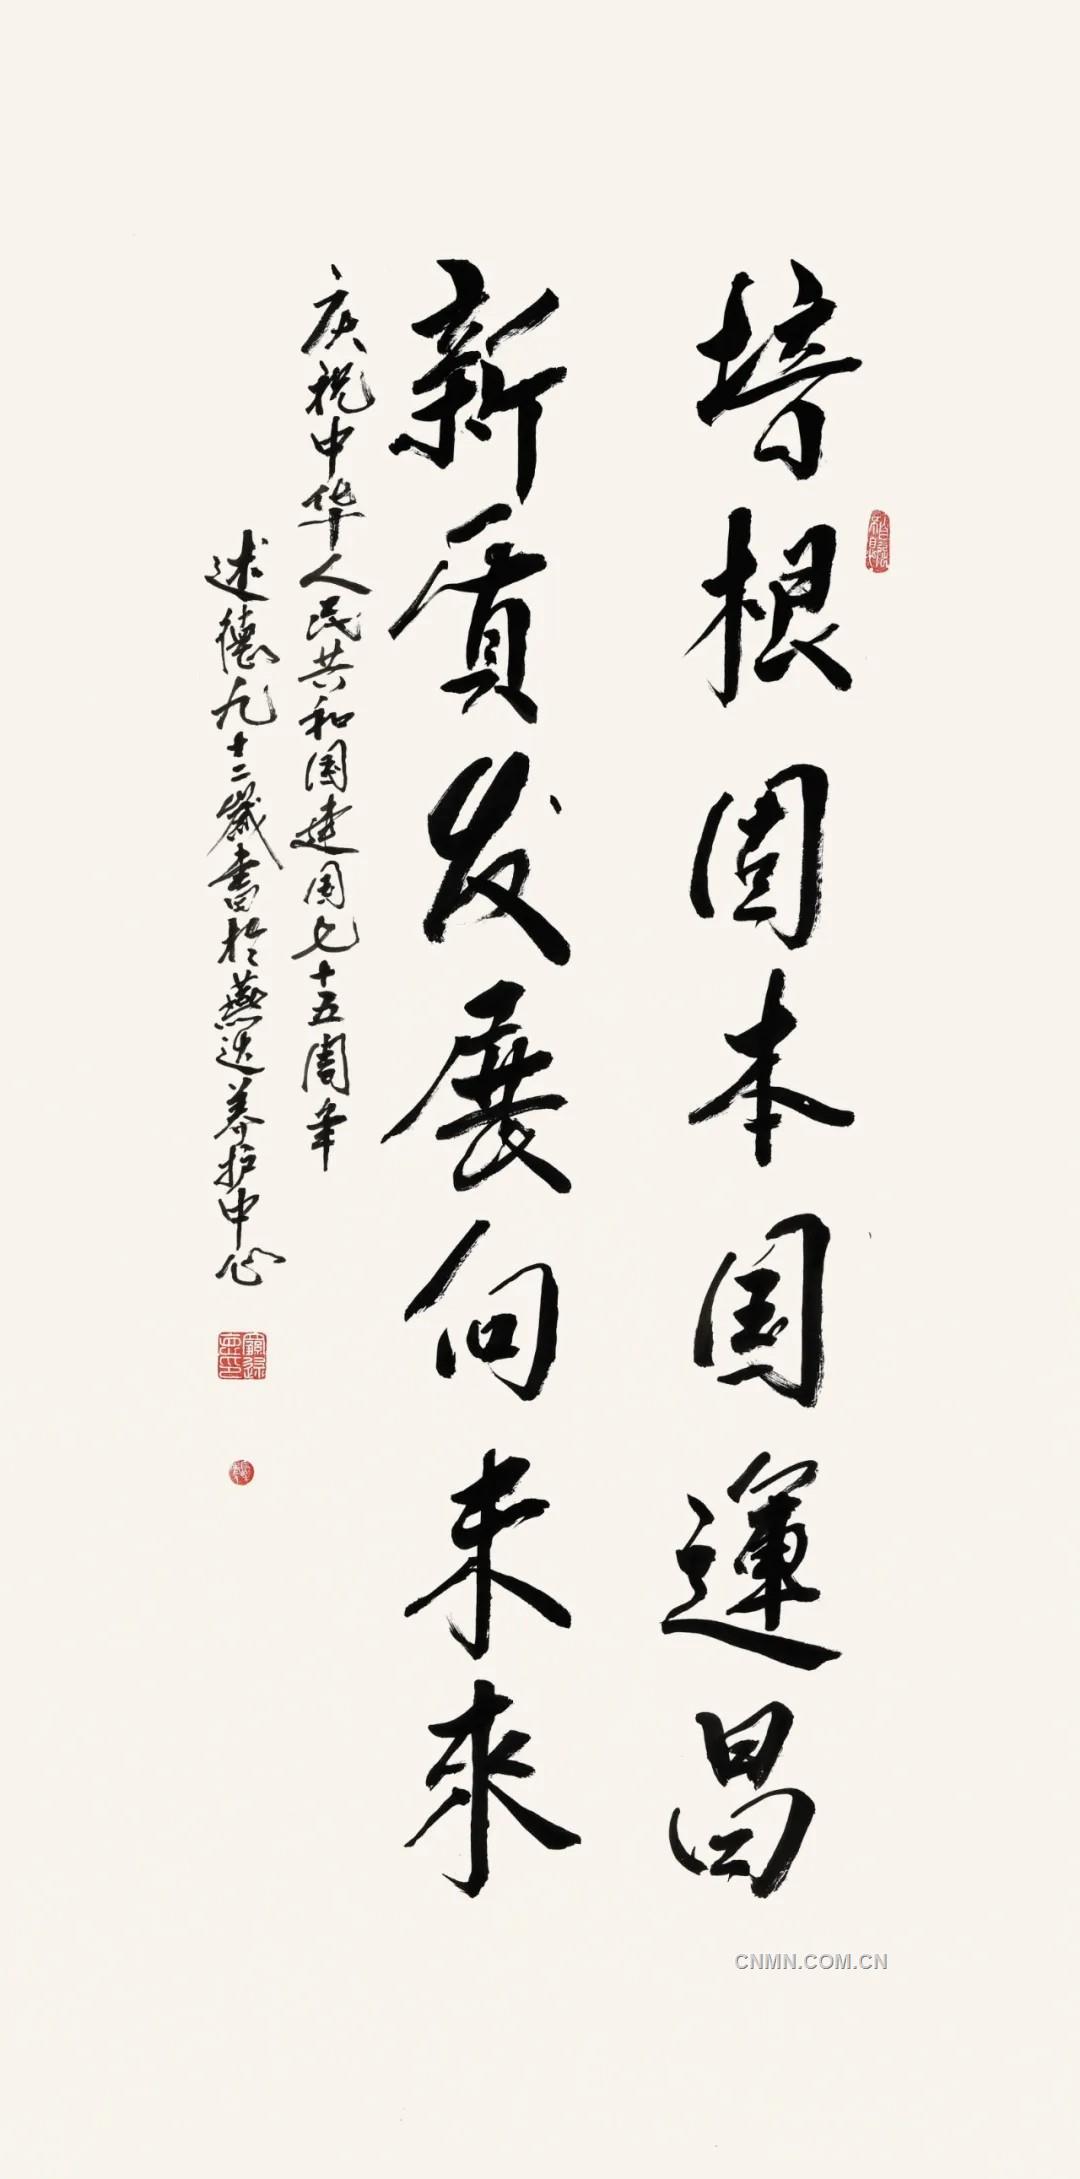 培根固本国運昌
新质发展向未來
庆祝中华人民共和国建国七十五周年
述德九十二歲書於燕达养护中心
CNMN.COM.CN